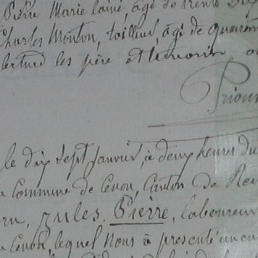 Pierre Marie Lainé, âgé de trente
Charles Monton, tailleur, âgé de quarante
lecture les père et témoin
Prioux
le dix sept Janvier à deux heures du
Commune de Cenon, Canton de
Jules, Pierre, laboureur
Cenon, lequel nous a présenté un